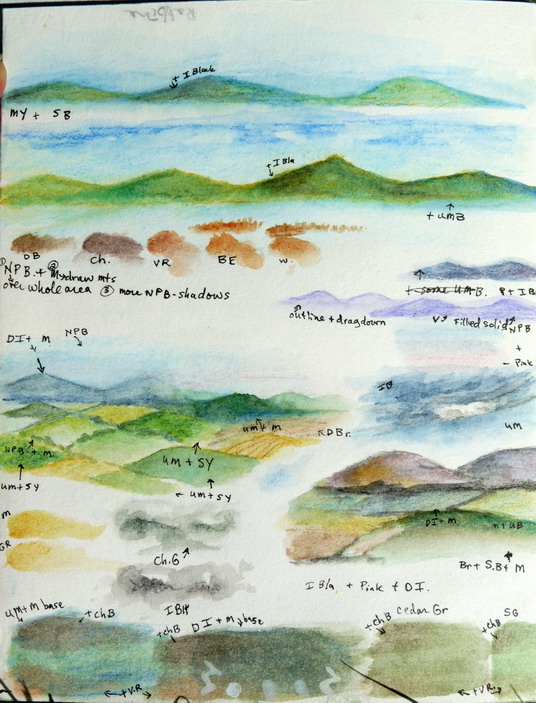 + I Black
MY + SB
+ I Bla
+ UMB
DB Ch. VR BE W.
① NPB. + ② Hydraw mts
over whole area ③ more NPB-shadows
+ some U M B. P + IB
outline + dragdown V↗ Filled solid↗ NPB
+
- Pink
DI + M NPB
IB
um + m
← DBr.
UM
UPB + m
um + SY
um + SY
← um + SY
M
GR
Ch.G
DI + M
n + UB
Br + S.B + M
I Bla + Pink + D.I.
um + m base
+ chB
IBl
+ chB DI + m base
+ chB Cedar Gr
+ chB SG
← + V.R →
← + V.R →